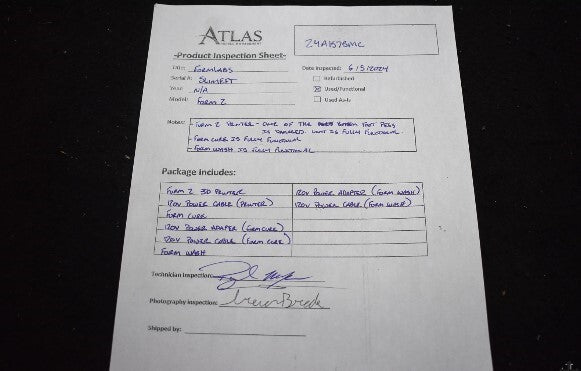 ATLAS
24A1575MC
-Product Inspection Sheet-
Title: FORMLABS
Date Inspected: 6/5/2024
Serial #:
Refurbished
Year: N/A
Used/Functional
Model: FORM 2
Used As-Is
Notes: - FORM 2 PRINTER - ONE OF THE BOTTOM FOOT PEGS
IS DAMAGED. UNIT IS FULLY FUNCTIONAL.
- FORM CURE IS FULLY FUNCTIONAL
- FORM WASH IS FULLY FUNCTIONAL
Package Includes:
FORM 2 3D PRINTER
120V POWER ADAPTER (FORM WASH)
120V POWER CABLE (PRINTER)
120V POWER CABLE (FORM WASH)
FORM CURE
120V POWER ADAPTER (FORM CURE)
120V POWER CABLE (FORM CURE)
FORM WASH
Technician Inspection:
Photography Inspection:
Shipped by: